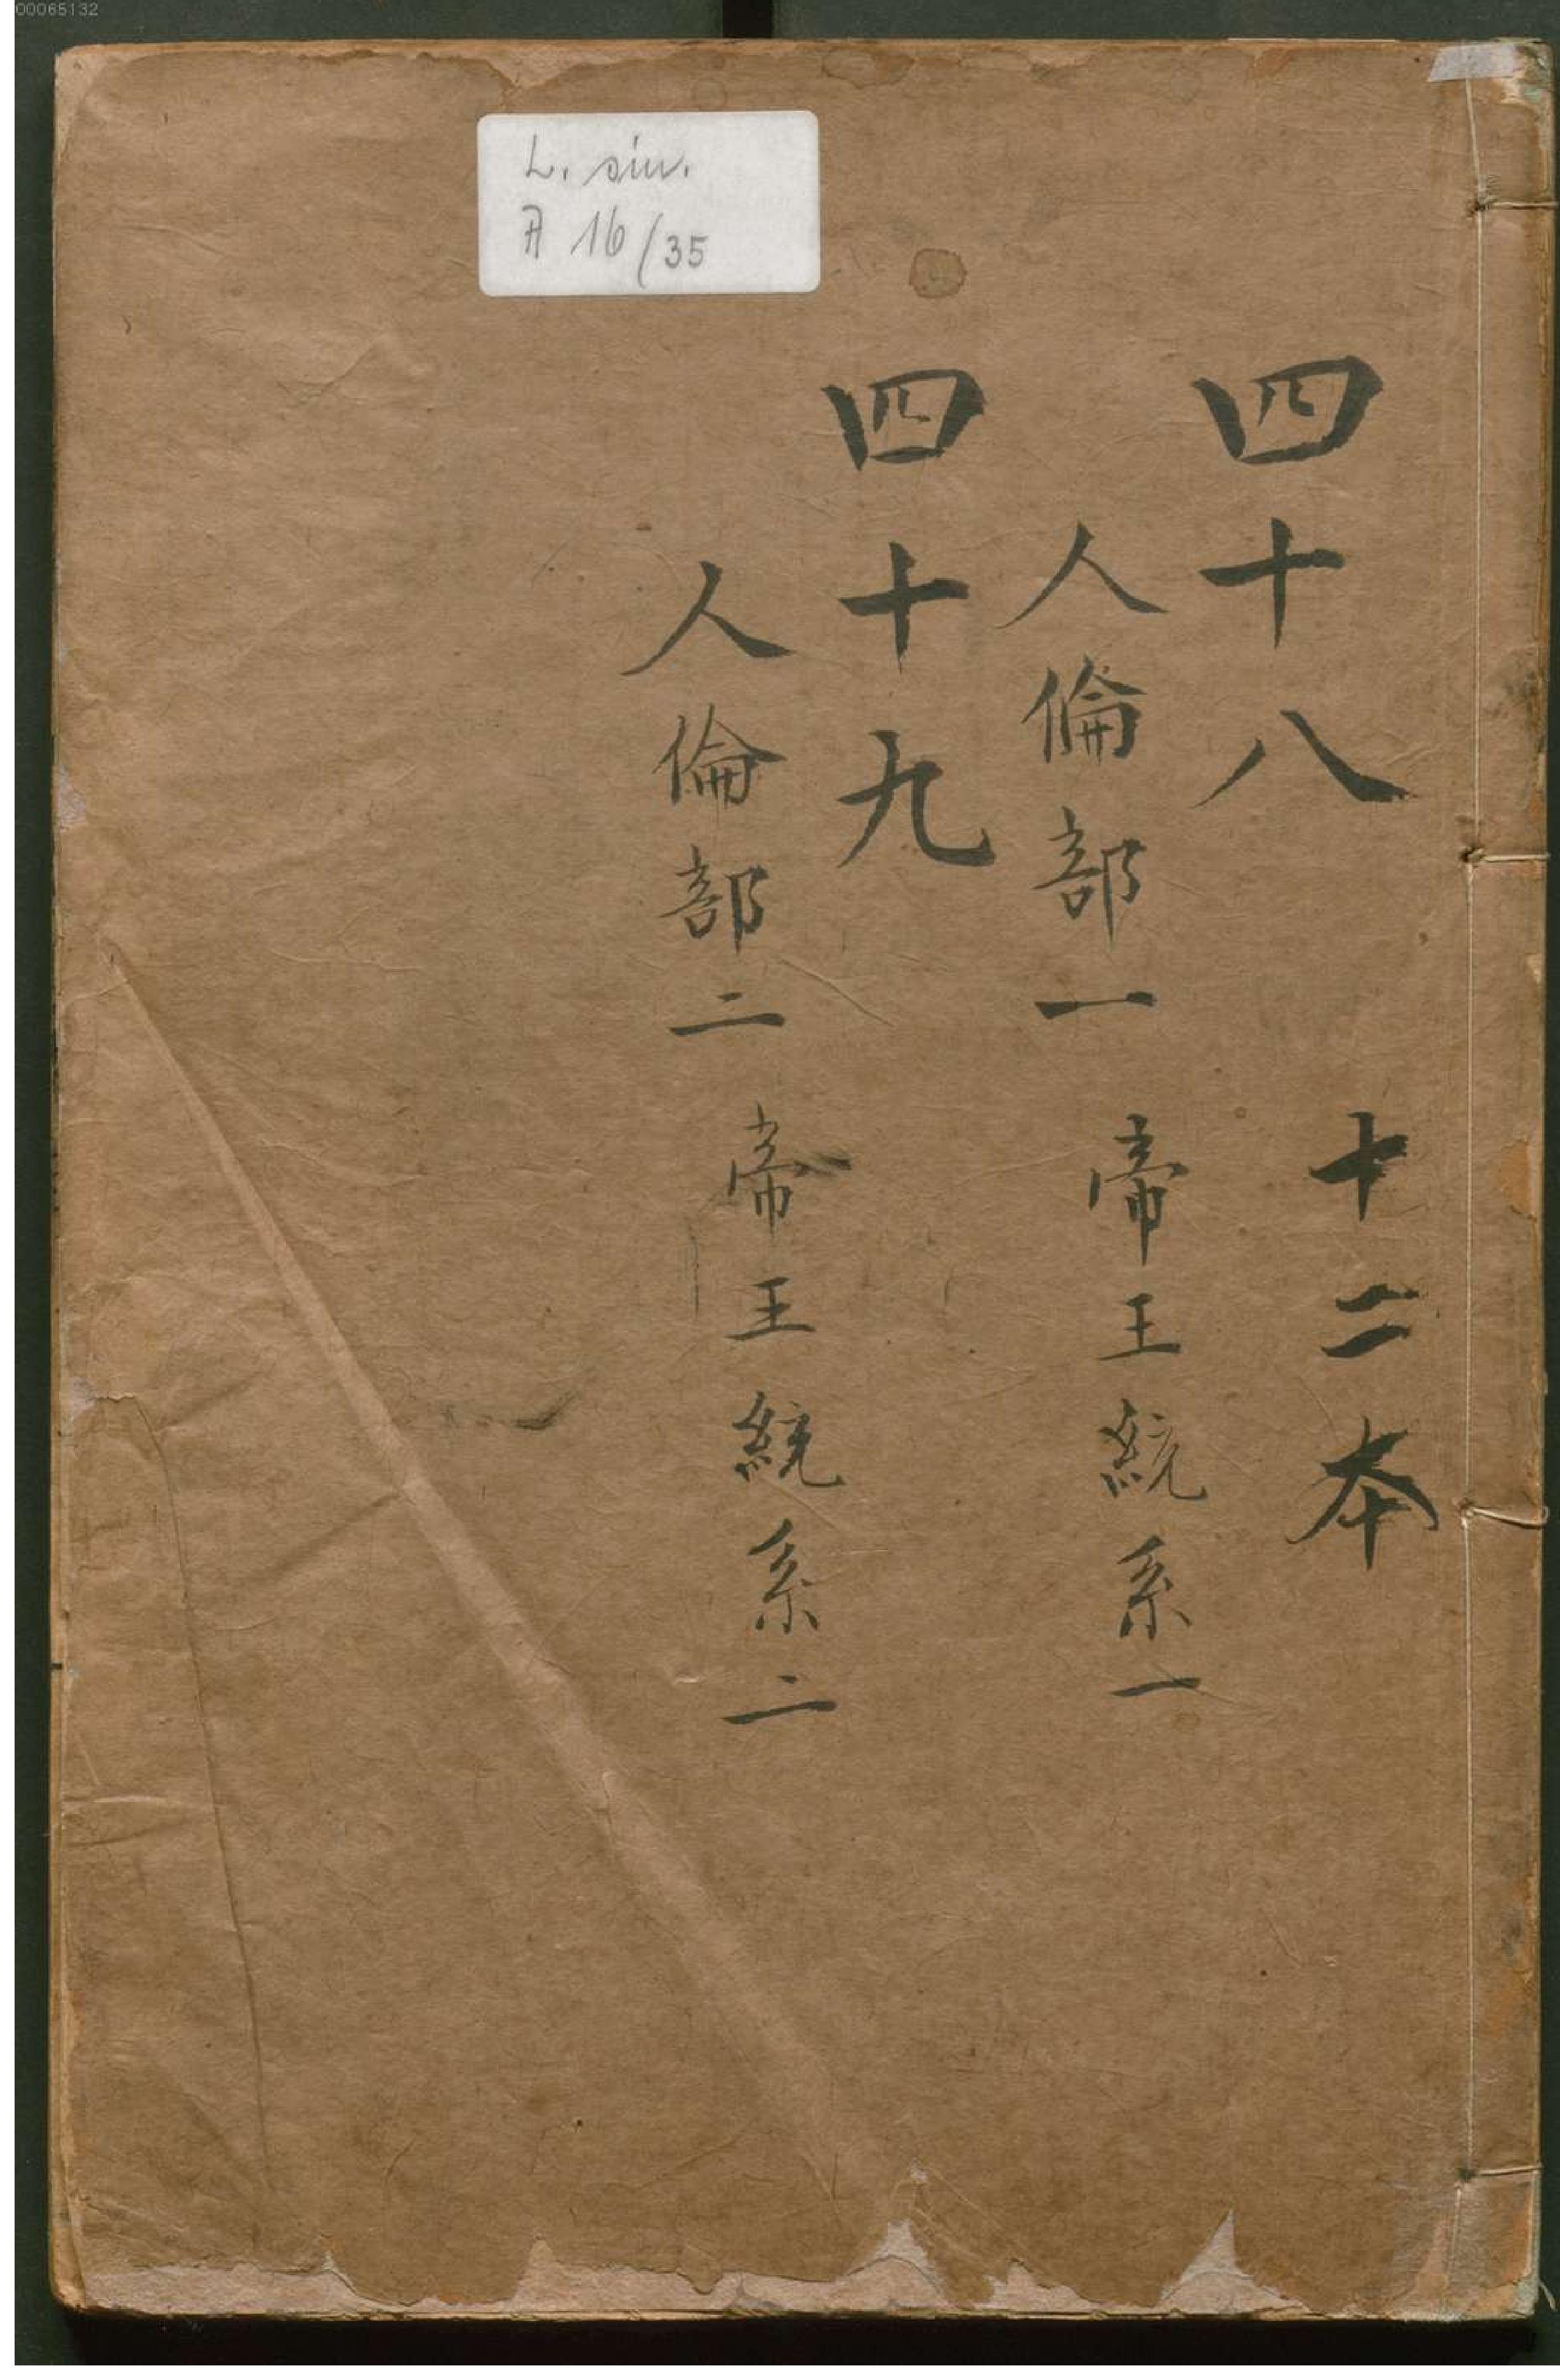 00065132
L. sin.
A 16/35
十二本
四十八
人倫部一
帝王統系一
四十九
人倫部二
帝王統系二